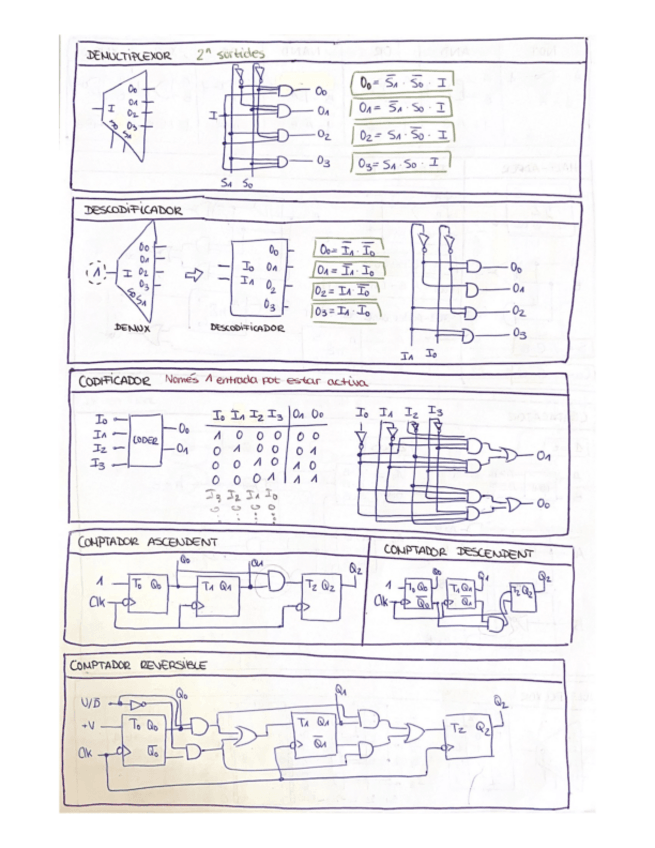 DEMULTIPLEXOR 2ⁿ sortides
I O0 O1 O2 O3 S0 S1
I S1 S0 O0 O1 O2 O3
O0 = S̅1 · S̅0 · I
O1 = S̅1 · S0 · I
O2 = S1 · S̅0 · I
O3 = S1 · S0 · I
DESCODIFICADOR
1 I O0 O1 O2 O3 S0 S1
DEMUX
I0 I1 O0 O1 O2 O3
DESCODIFICADOR
O0 = I̅1 · I̅0
O1 = I̅1 · I0
O2 = I1 · I̅0
O3 = I1 · I0
O0 O1 O2 O3
I1 I0
CODIFICADOR Només 1 entrada pot estar activa
I0 I1 I2 I3 CODER O0 O1
I0 I1 I2 I3 O1 O0
1 0 0 0 0 0
0 1 0 0 0 1
0 0 1 0 1 0
0 0 0 1 1 1
I3 I2 I1 I0
I0 I1 I2 I3
O1
O0
COMPTADOR ASCENDENT
1 Clk T0 Q0 Q0 T1 Q1 Q1 T2 Q2 Q2
COMPTADOR DESCENDENT
1 Clk T0 Q0 Q̅0 Q0 T1 Q1 Q̅1 Q1 T2 Q2 Q2
COMPTADOR REVERSIBLE
U/D̅ Q0 Q1 Q2
+V T0 Q0 T1 Q1 T2 Q2
Clk Q̅0 Q̅1